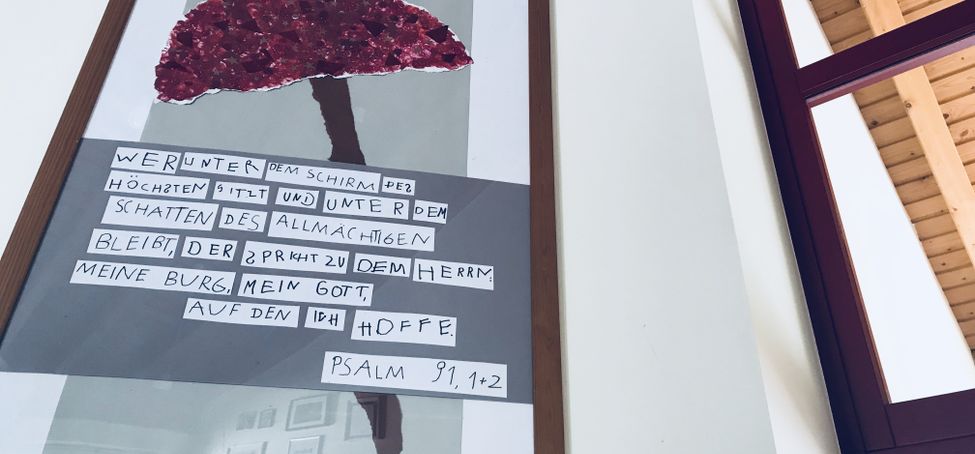 WER UNTER DEM SCHIRM DES
HÖCHSTEN SITZT UND UNTER DEM
SCHATTEN DES ALLMÄCHTIGEN
BLEIBT, DER SPRICHT ZU DEM HERRN:
MEINE BURG, MEIN GOTT,
AUF DEN ICH HOFFE.
PSALM 91, 1+2